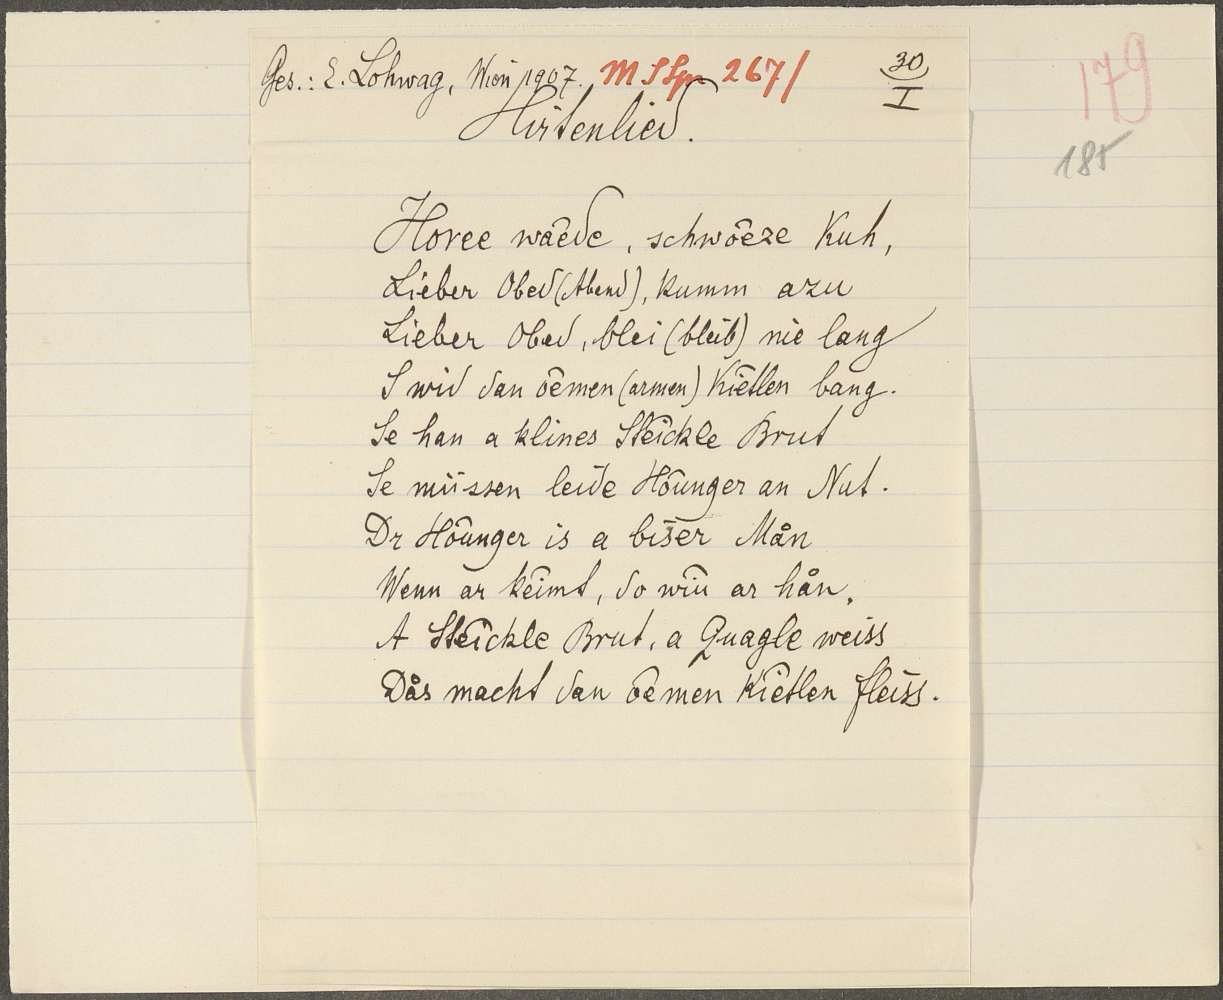 Ges.: E. Lohwag, Wien 1907. M S Spr 267/ 30
I
179
185
Hirtenlied.
Horee wäede, schwöeze Kuh,
Lieber Obed (Abend), kumm azu
Lieber Obed, blei (bleib) nie lang
S wid dan ōemen (armen) Kietlen bang.
Se han a klines Steickle Brut
Se müssen leide Hōunger an Nut.
Dr Hōunger is a bīser Mån
Wenn ar keimt, do wiu ar hån.
A Steickle Brut, a Quagle weiss
Dås macht dan ōemen Kietlen fleiss.